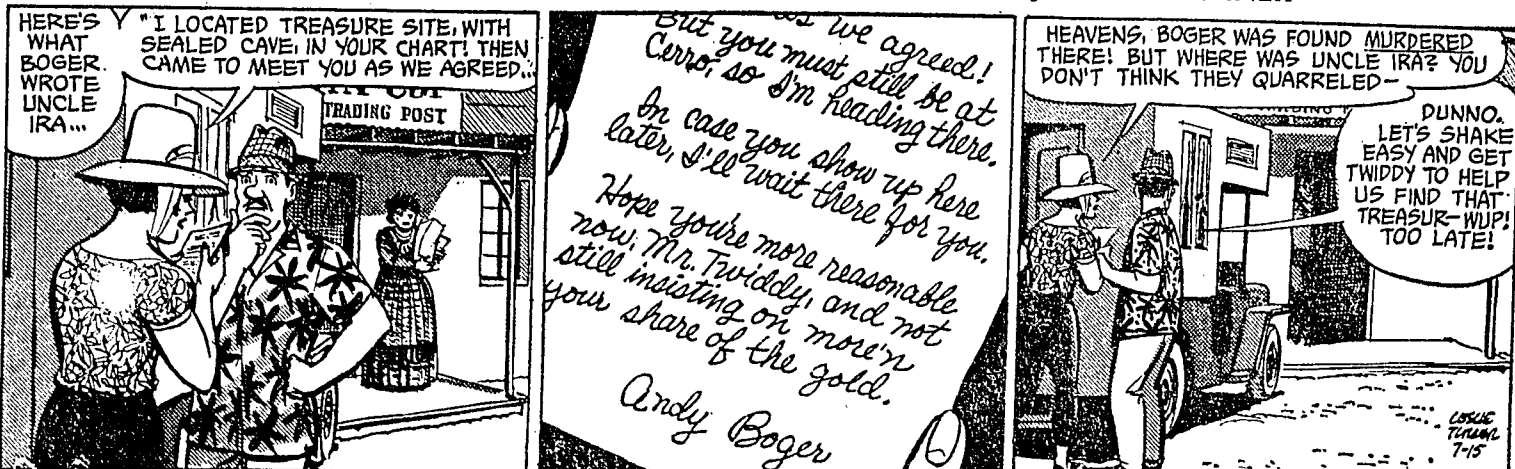 HERE'S
WHAT
BOGER
WROTE
UNCLE
IRA...
"I LOCATED TREASURE SITE, WITH
SEALED CAVE, IN YOUR CHART! THEN
CAME TO MEET YOU AS WE AGREED...
TRADING POST
as we agreed!
But you must still be at
Cerro, so I'm heading there.
In case you show up here
later, I'll wait there for you.
Hope you're more reasonable
now, Mr. Twiddy, and not
still insisting on more'n
your share of the gold.
Andy Boger
HEAVENS, BOGER WAS FOUND MURDERED
THERE! BUT WHERE WAS UNCLE IRA? YOU
DON'T THINK THEY QUARRELED—
DUNNO.
LET'S SHAKE
EASY AND GET
TWIDDY TO HELP
US FIND THAT
TREASUR—WUP!
TOO LATE!
LESLIE
TURNER
7-15